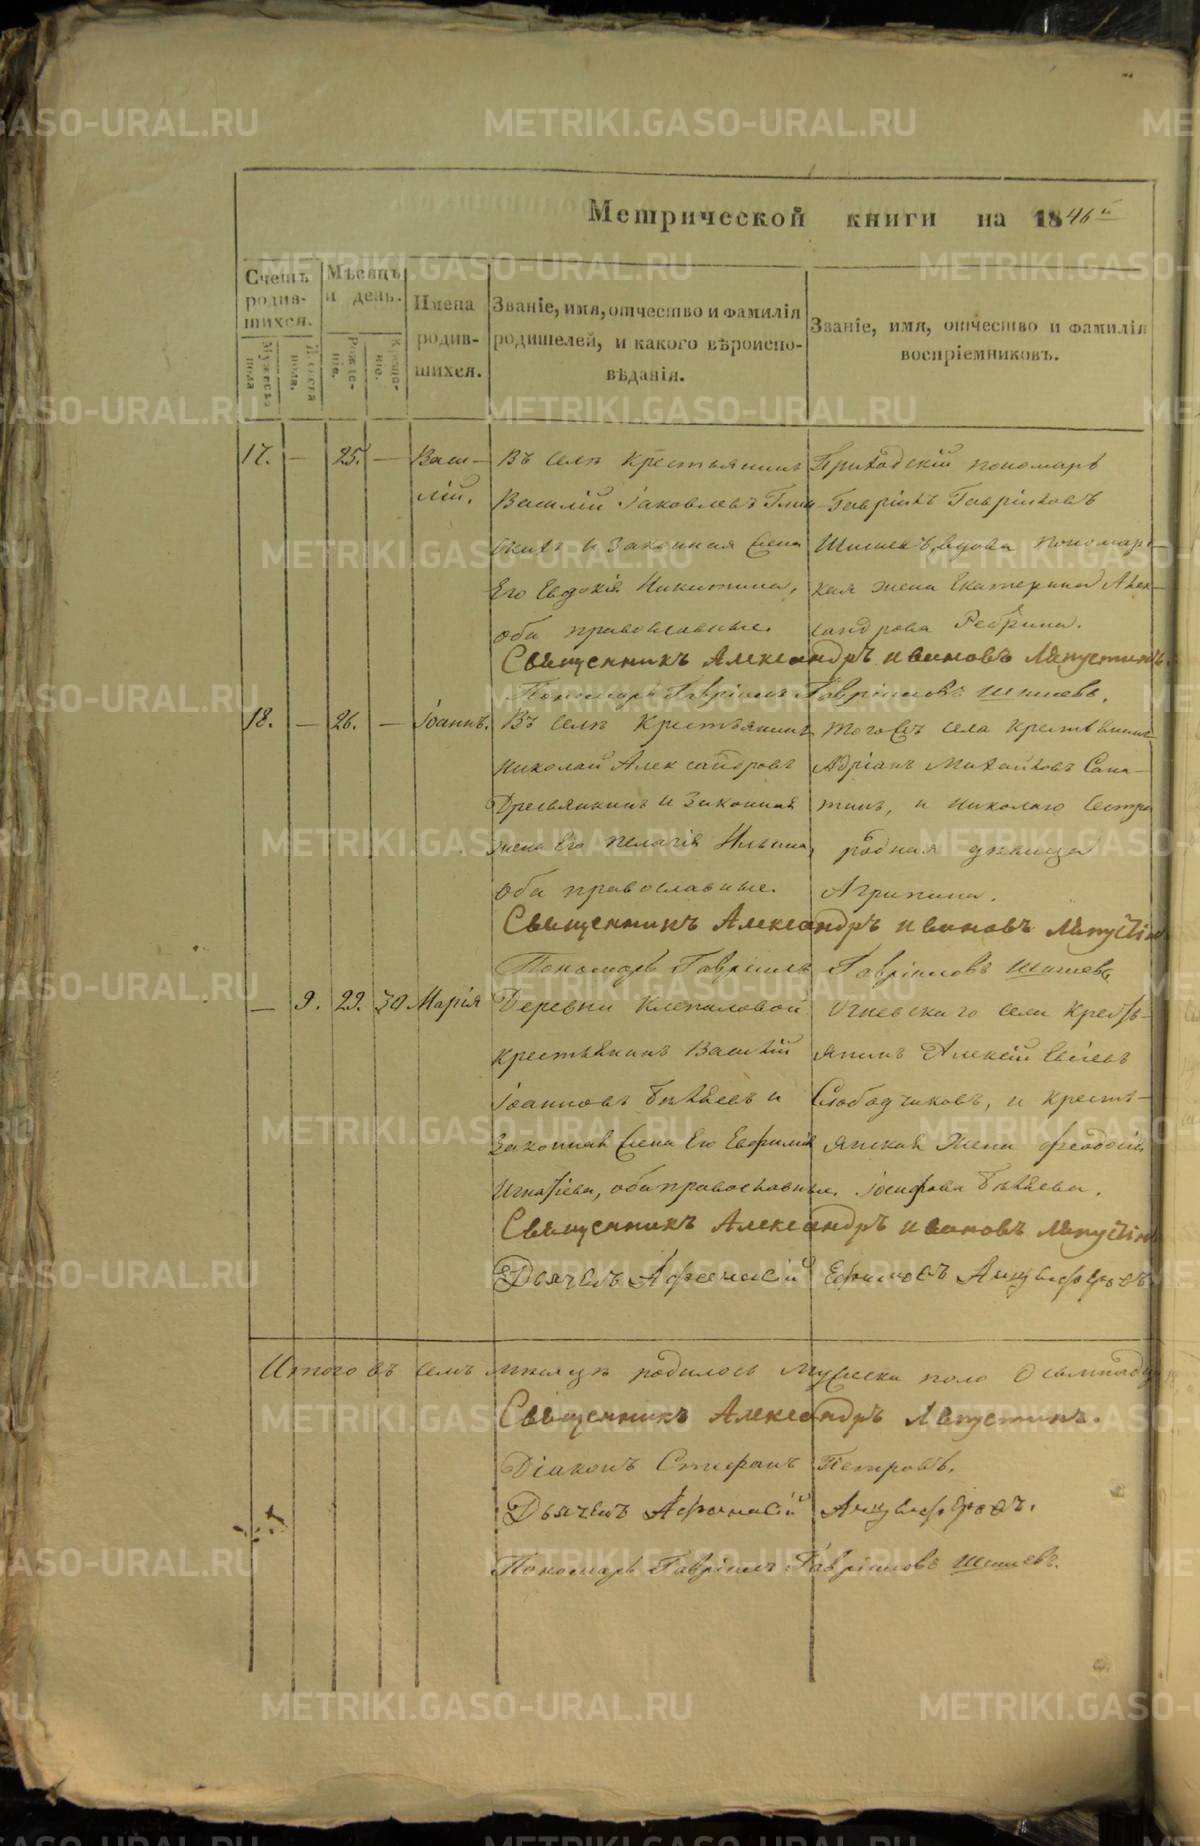 Метрической книги на 1846й
Счетъ родив-шихся.
Мѣсяцъ и день.
Имена родив-шихся.
Званіе, имя, отчество и фамилія родителей, и какого вѣроиспо-вѣданія.
Званіе, имя, отчество и фамилія воспріемниковъ.
Мужеска пола
Женска пола.
Рожде-нія.
Креще-ніе.
17. — 25. — Васи-
лій.
Въ селѣ крестьянинъ
Василій Іаковлевъ
и законная жена
Его Евдокія Никитина,
оба православные.
Приходскій пономарь
Гавріилъ Гавріиловъ
Шишевъ, вдова пономарс-
кая жена Екатерина Алек-
сандрова Ребрина.
Священникъ Александръ Ивановъ Лапустинъ.
Пономарь Гавріилъ Гавріиловъ Шишевъ.
18. — 26. — Іоаннъ.
Въ селѣ крестьянинъ
Николай Александровъ
Древянкинъ и законная
жена Его Пелагія Ильина,
оба православные.
тогожъ села крестьянинъ
Адріанъ Михайловъ
и Николаю сестра
родная дѣвица
Агрипина.
Священникъ Александръ Ивановъ Лапустинъ
Пономарь Гавріилъ Гавріиловъ Шишевъ
— 9. 29. 30 Марія
Деревни Клепаловой
крестьянинъ Василій
Іоанновъ Бѣляевъ и
законная жена Его Евфимія
Игнатіева, оба православные.
Огневскаго села кресть-
янинъ Алексій
Слободчиковъ, и кресть-
янская жена Феодосія
Іосифова Бѣляева.
Священникъ Александръ Ивановъ Лапустинъ
Дьячекъ Афанасій Ефимовъ Анцыферовъ
Итого въ семъ мѣсяцѣ родилось мужеска поло осьмнадц
Священникъ Александръ Лапустинъ.
Діаконъ Стефанъ Петровъ.
Дьячекъ Афанасій Анцыферовъ.
Пономарь Гавріилъ Гавріиловъ Шишевъ.
METRIKI.GASO-URAL.RU